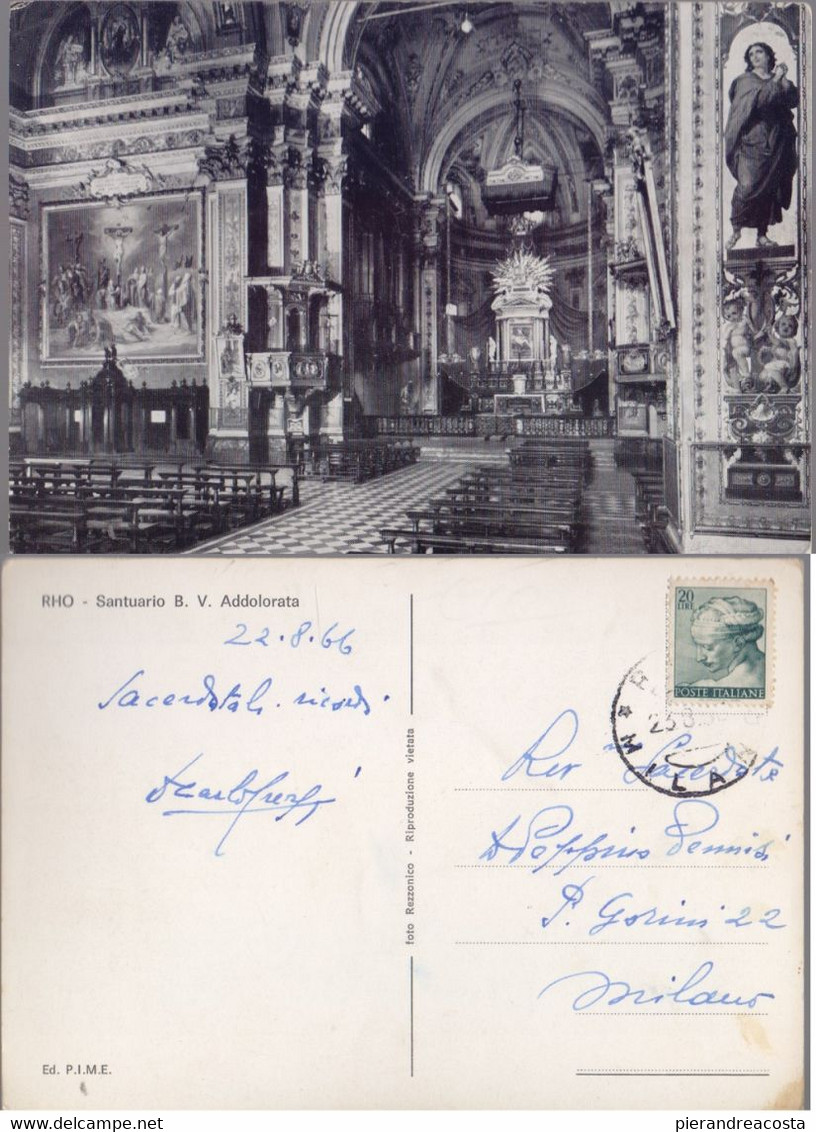 RHO - Santuario B. V. Addolorata
22.8.66
Sacerdotali ricordi
foto Rezzonico - Riproduzione vietata
20
LIRE
POSTE ITALIANE
MILA
Rev Sacerdote
d Peppino Pennisi
P. Gorini 22
Milano
Ed. P.I.M.E.
delcampe.net
pierandreacosta